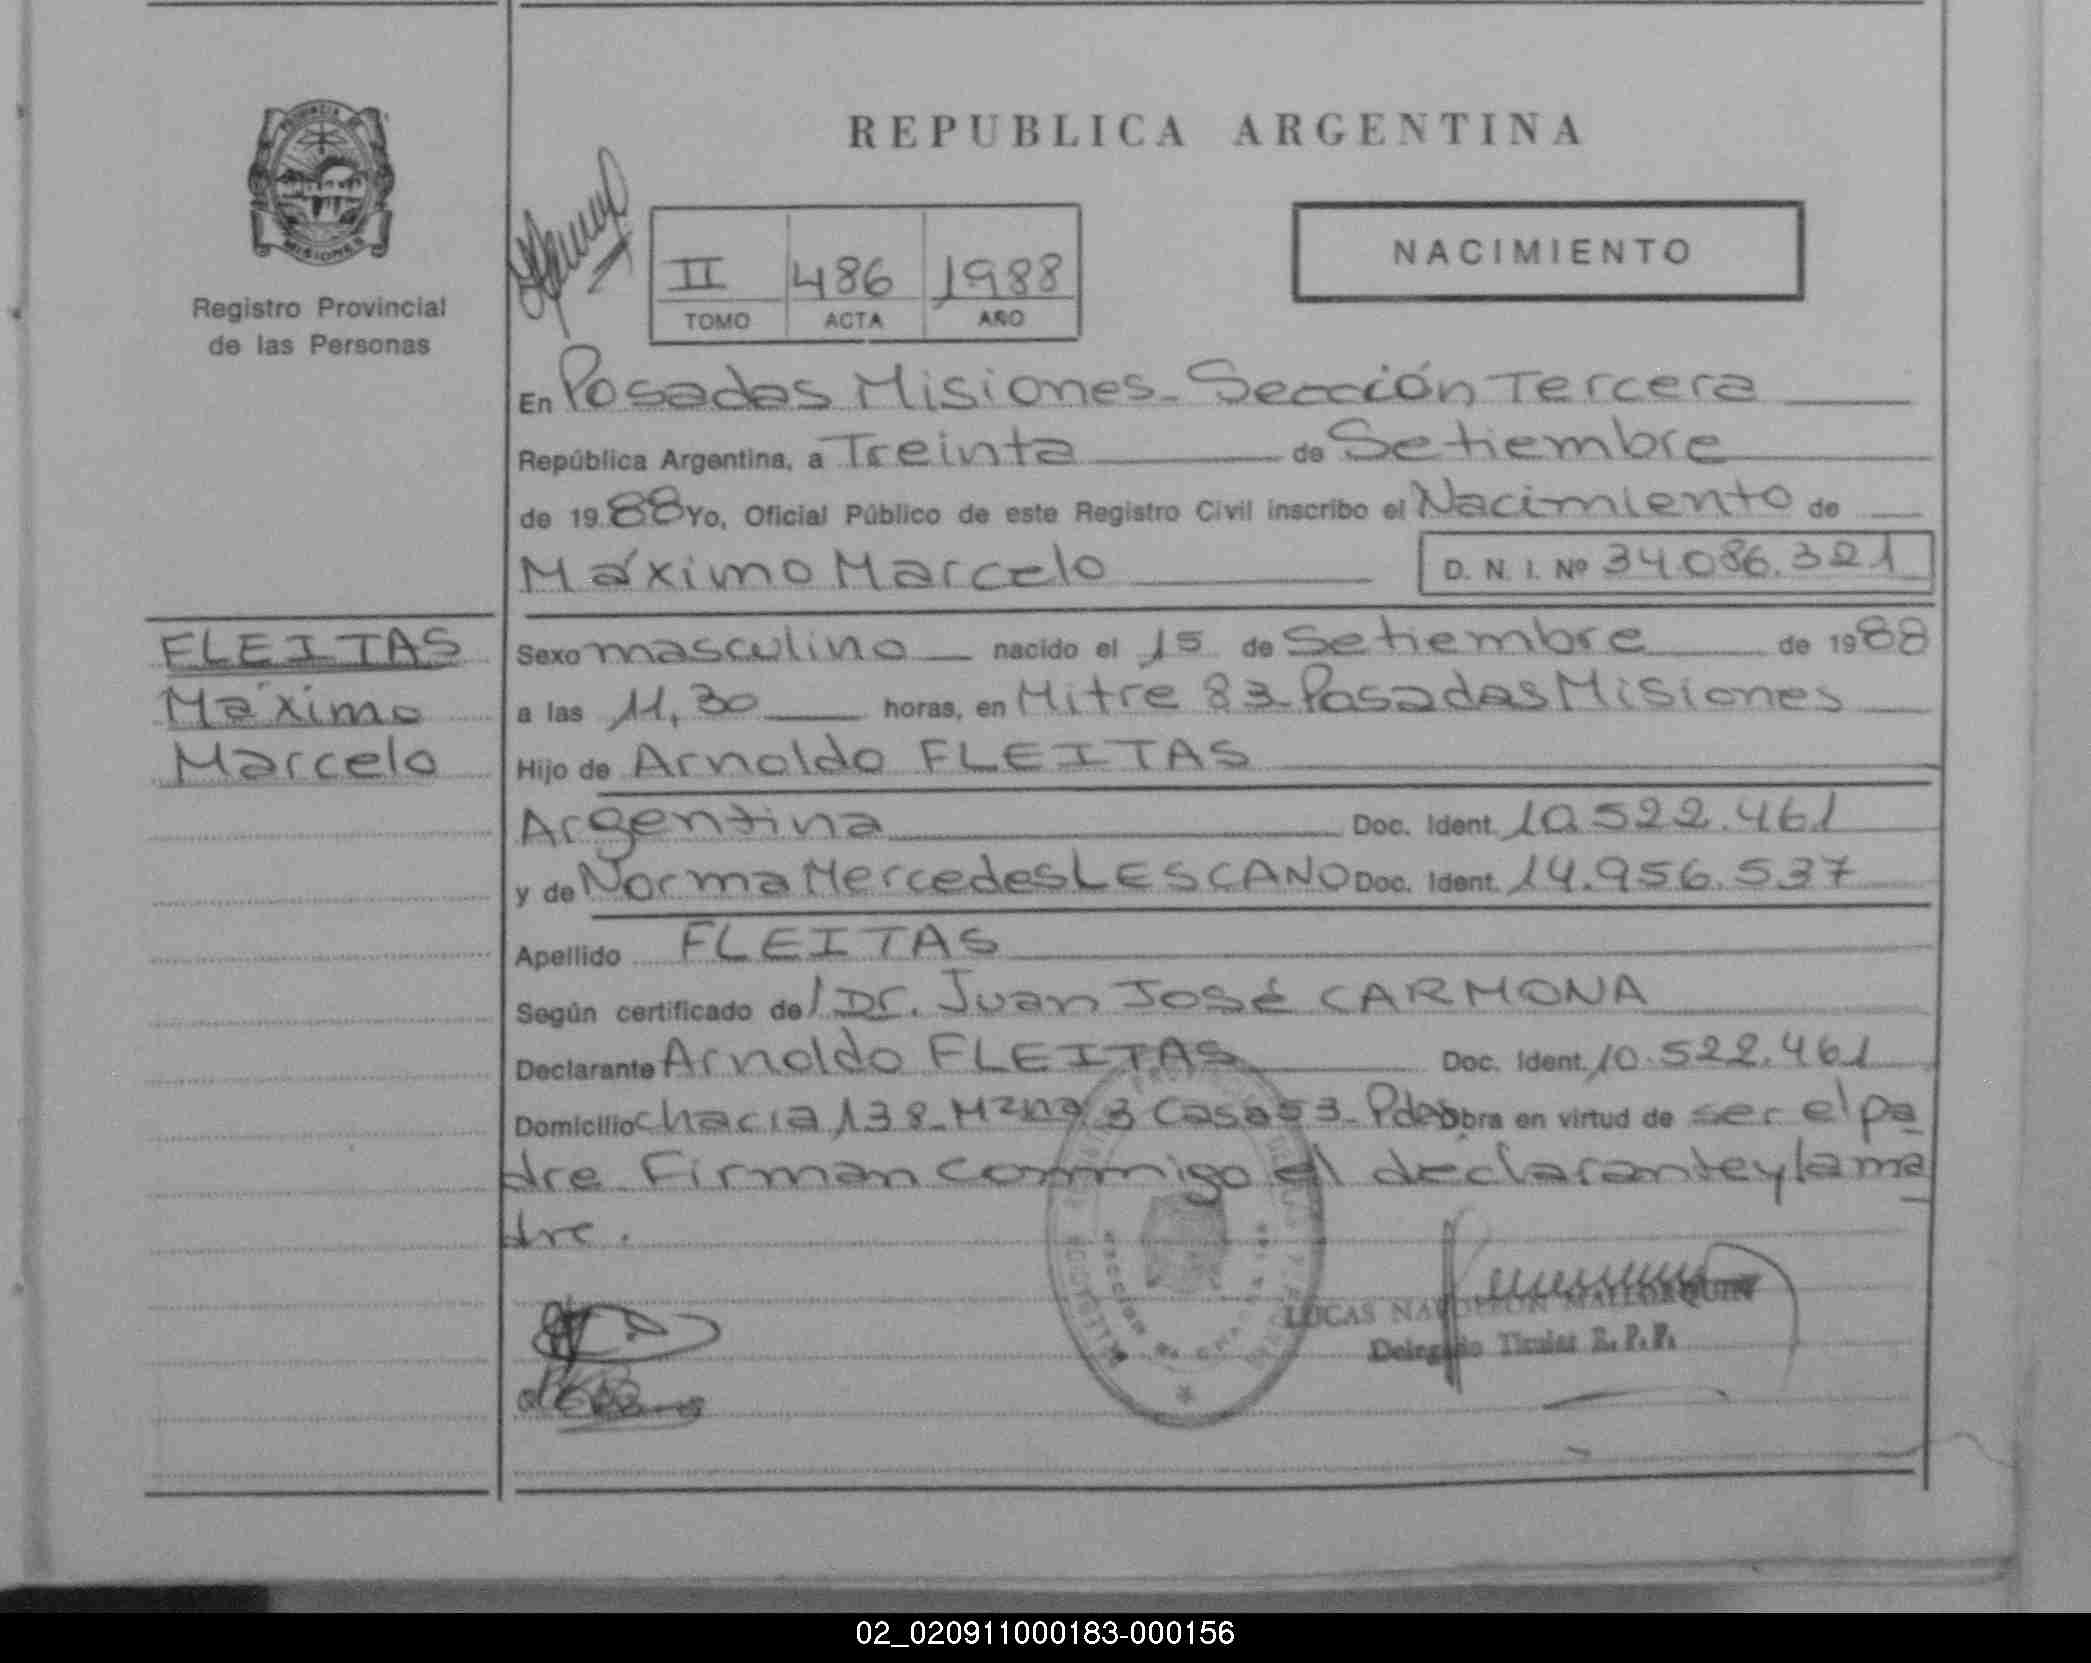 PROVINCIA DE
MISIONES
Registro Provincial
de las Personas
REPUBLICA ARGENTINA
NACIMIENTO
II 486 1988
TOMO ACTA AÑO
En Posadas Misiones - Sección Tercera
República Argentina, a Treinta de Setiembre
de 1988 Yo, Oficial Público de este Registro Civil inscribo el Nacimiento de
Máximo Marcelo D. N. I. Nº 34.086.321
FLEITAS
Máximo
Marcelo
Sexo masculino nacido el 15 de Setiembre de 1988
a las 11,30 horas, en Mitre 83 - Posadas Misiones
Hijo de Arnoldo FLEITAS
Argentina Doc. Ident. 10.522.461
y de Norma Mercedes LESCANO Doc. Ident. 14.956.537
Apellido FLEITAS
Según certificado de/ Dr. Juan José CARMONA
Declarante Arnoldo FLEITAS Doc. Ident. 10.522.461
Domicilio chacra 138 - Mzna 3 Casa 53 - Pdas obra en virtud de ser el pa
dre Firman conmigo el declarante y la ma
dre.
LUCAS NAPOLEON MALLORQUIN
Delegado Titular R. P. P.
02_020911000183-000156